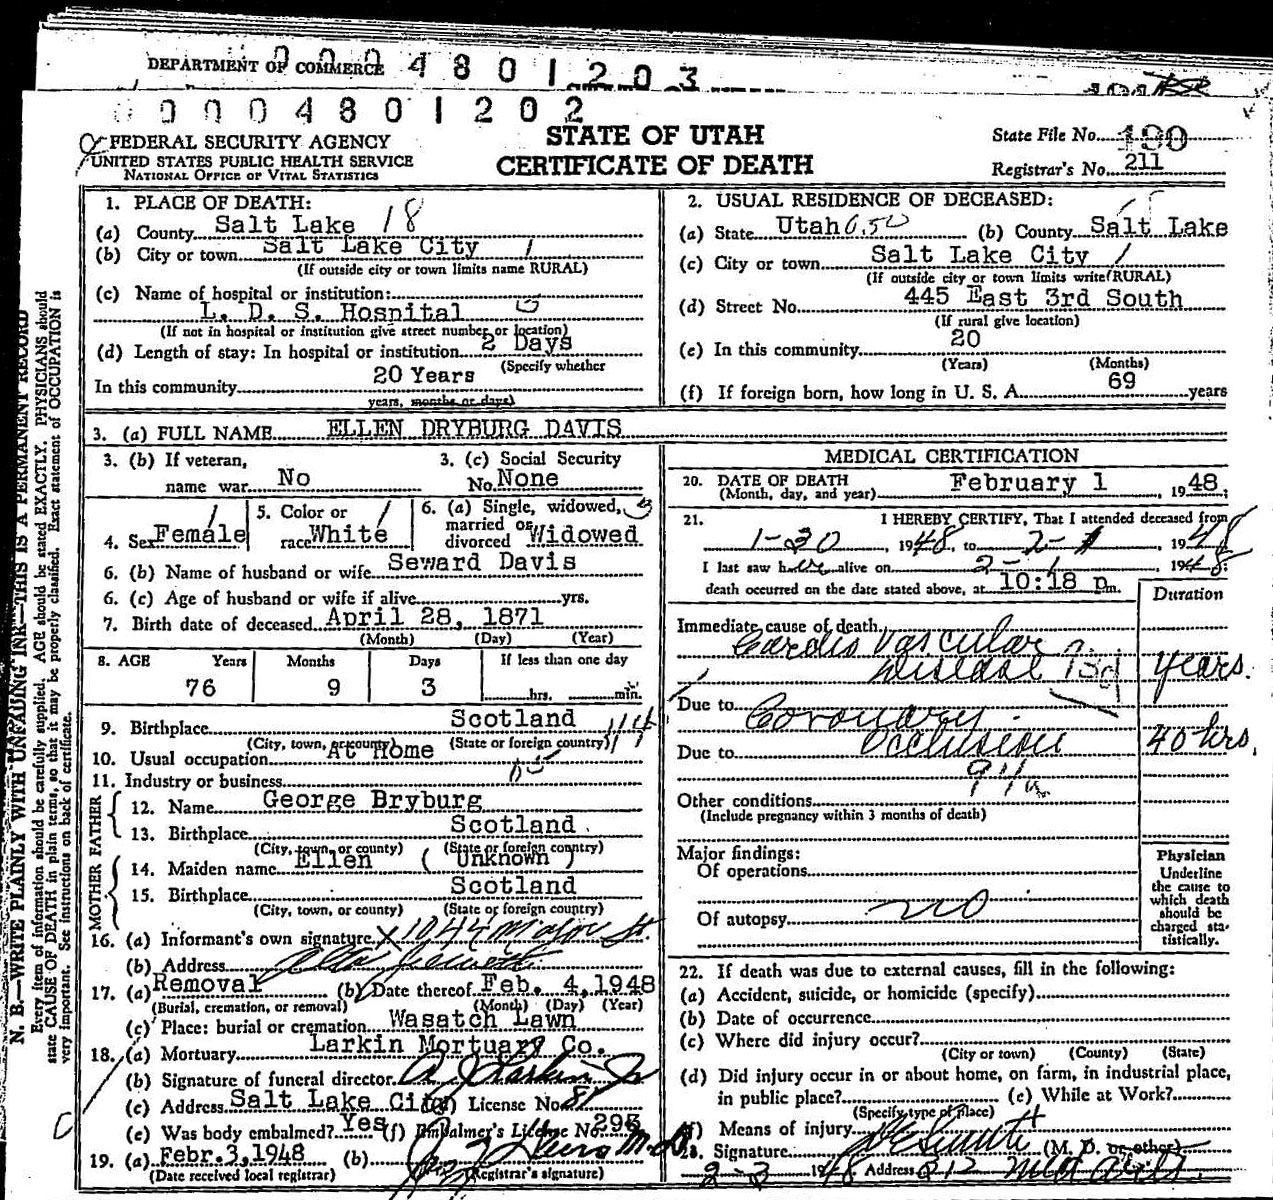 DEPARTMENT OF COMMERCE 0 0 0 4 8 0 1 2 0 3
0 0 0 0 4 8 0 1 2 0 2
FEDERAL SECURITY AGENCY
UNITED STATES PUBLIC HEALTH SERVICE
NATIONAL OFFICE OF VITAL STATISTICS
STATE OF UTAH
CERTIFICATE OF DEATH
State File No. 190
Registrar's No. 211
N. B.—WRITE PLAINLY WITH UNFADING INK—THIS IS A PERMANENT RECORD
Every item of information should be carefully supplied. AGE should be stated EXACTLY. PHYSICIANS should
state CAUSE OF DEATH in plain terms, so that it may be properly classified. Exact statement of OCCUPATION is
very important. See instructions on back of certificate.
1. PLACE OF DEATH:
(a) County Salt Lake 18
(b) City or town Salt Lake City 1
(If outside city or town limits name RURAL)
(c) Name of hospital or institution:
L. D. S. Hospital
(If not in hospital or institution give street number or location)
(d) Length of stay: In hospital or institution 2 Days
(Specify whether
In this community 20 Years
years, months or days)
2. USUAL RESIDENCE OF DECEASED:
(a) State Utah 650 (b) County Salt Lake
(c) City or town Salt Lake City 1
(If outside city or town limits write RURAL)
(d) Street No. 445 East 3rd South
(If rural give location)
(e) In this community 20
(Years) (Months)
(f) If foreign born, how long in U. S. A. 69 years
3. (a) FULL NAME ELLEN DRYBURG DAVIS
3. (b) If veteran,
name war No
3. (c) Social Security
No. None
4. Sex Female
5. Color or
race White
6. (a) Single, widowed, 3
married or
divorced Widowed
6. (b) Name of husband or wife Seward Davis
6. (c) Age of husband or wife if alive yrs.
7. Birth date of deceased April 28, 1871
(Month) (Day) (Year)
8. AGE Years Months Days If less than one day
76 9 3 hrs. min.
9. Birthplace Scotland
(City, town, or county) (State or foreign country)
10. Usual occupation At Home
11. Industry or business
FATHER
12. Name George Bryburg
13. Birthplace Scotland
(City, town, or county) (State or foreign country)
MOTHER
14. Maiden name Ellen ( Unknown )
15. Birthplace Scotland
(City, town, or county) (State or foreign country)
16. (a) Informant's own signature X 1044 Major St.
(b) Address
17. (a) Removal (b) Date thereof Feb. 4, 1948
(Burial, cremation, or removal) (Month) (Day) (Year)
(c) Place: burial or cremation Wasatch Lawn
18. (a) Mortuary Larkin Mortuary Co.
(b) Signature of funeral director
(c) Address Salt Lake City (d) License No.
(e) Was body embalmed? Yes (f) Embalmer's License No. 295
19. (a) Febr. 3, 1948 (b)
(Date received local registrar) (Registrar's signature)
MEDICAL CERTIFICATION
20. DATE OF DEATH
(Month, day, and year) February 1, 1948;
21. I HEREBY CERTIFY, That I attended deceased from
1-30, 1948, to 2-1 1948
I last saw her alive on 2-1, 1948;
death occurred on the date stated above, at 10:18 p.m.
Duration
Immediate cause of death
Cardio Vascular
Disease years.
Due to Coronary
Due to Occlusion 40 hrs.
Other conditions
(Include pregnancy within 3 months of death)
Major findings:
Of operations
Of autopsy no
Physician
Underline
the cause to
which death
should be
charged sta-
tistically.
22. If death was due to external causes, fill in the following:
(a) Accident, suicide, or homicide (specify)
(b) Date of occurrence
(c) Where did injury occur?
(City or town) (County) (State)
(d) Did injury occur in or about home, on farm, in industrial place,
in public place? (e) While at Work?
(Specify type of place)
(f) Means of injury
23. Signature (M. D. or other)
2-3 1948 Address